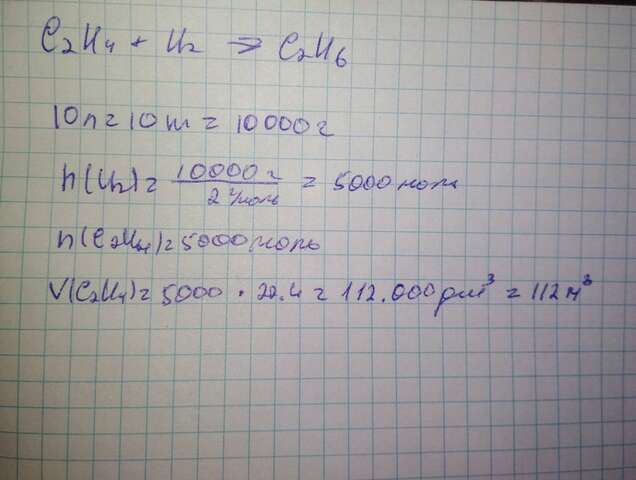 C₂H₄ + H₂ => C₂H₆
10л = 10 кг = 10000г
n(H₂) = 10000г / 2 г/моль = 5000 моль
n(C₂H₄) = 5000 моль
V(C₂H₄) = 5000 • 22.4 = 112.000 дм³ = 112 м³